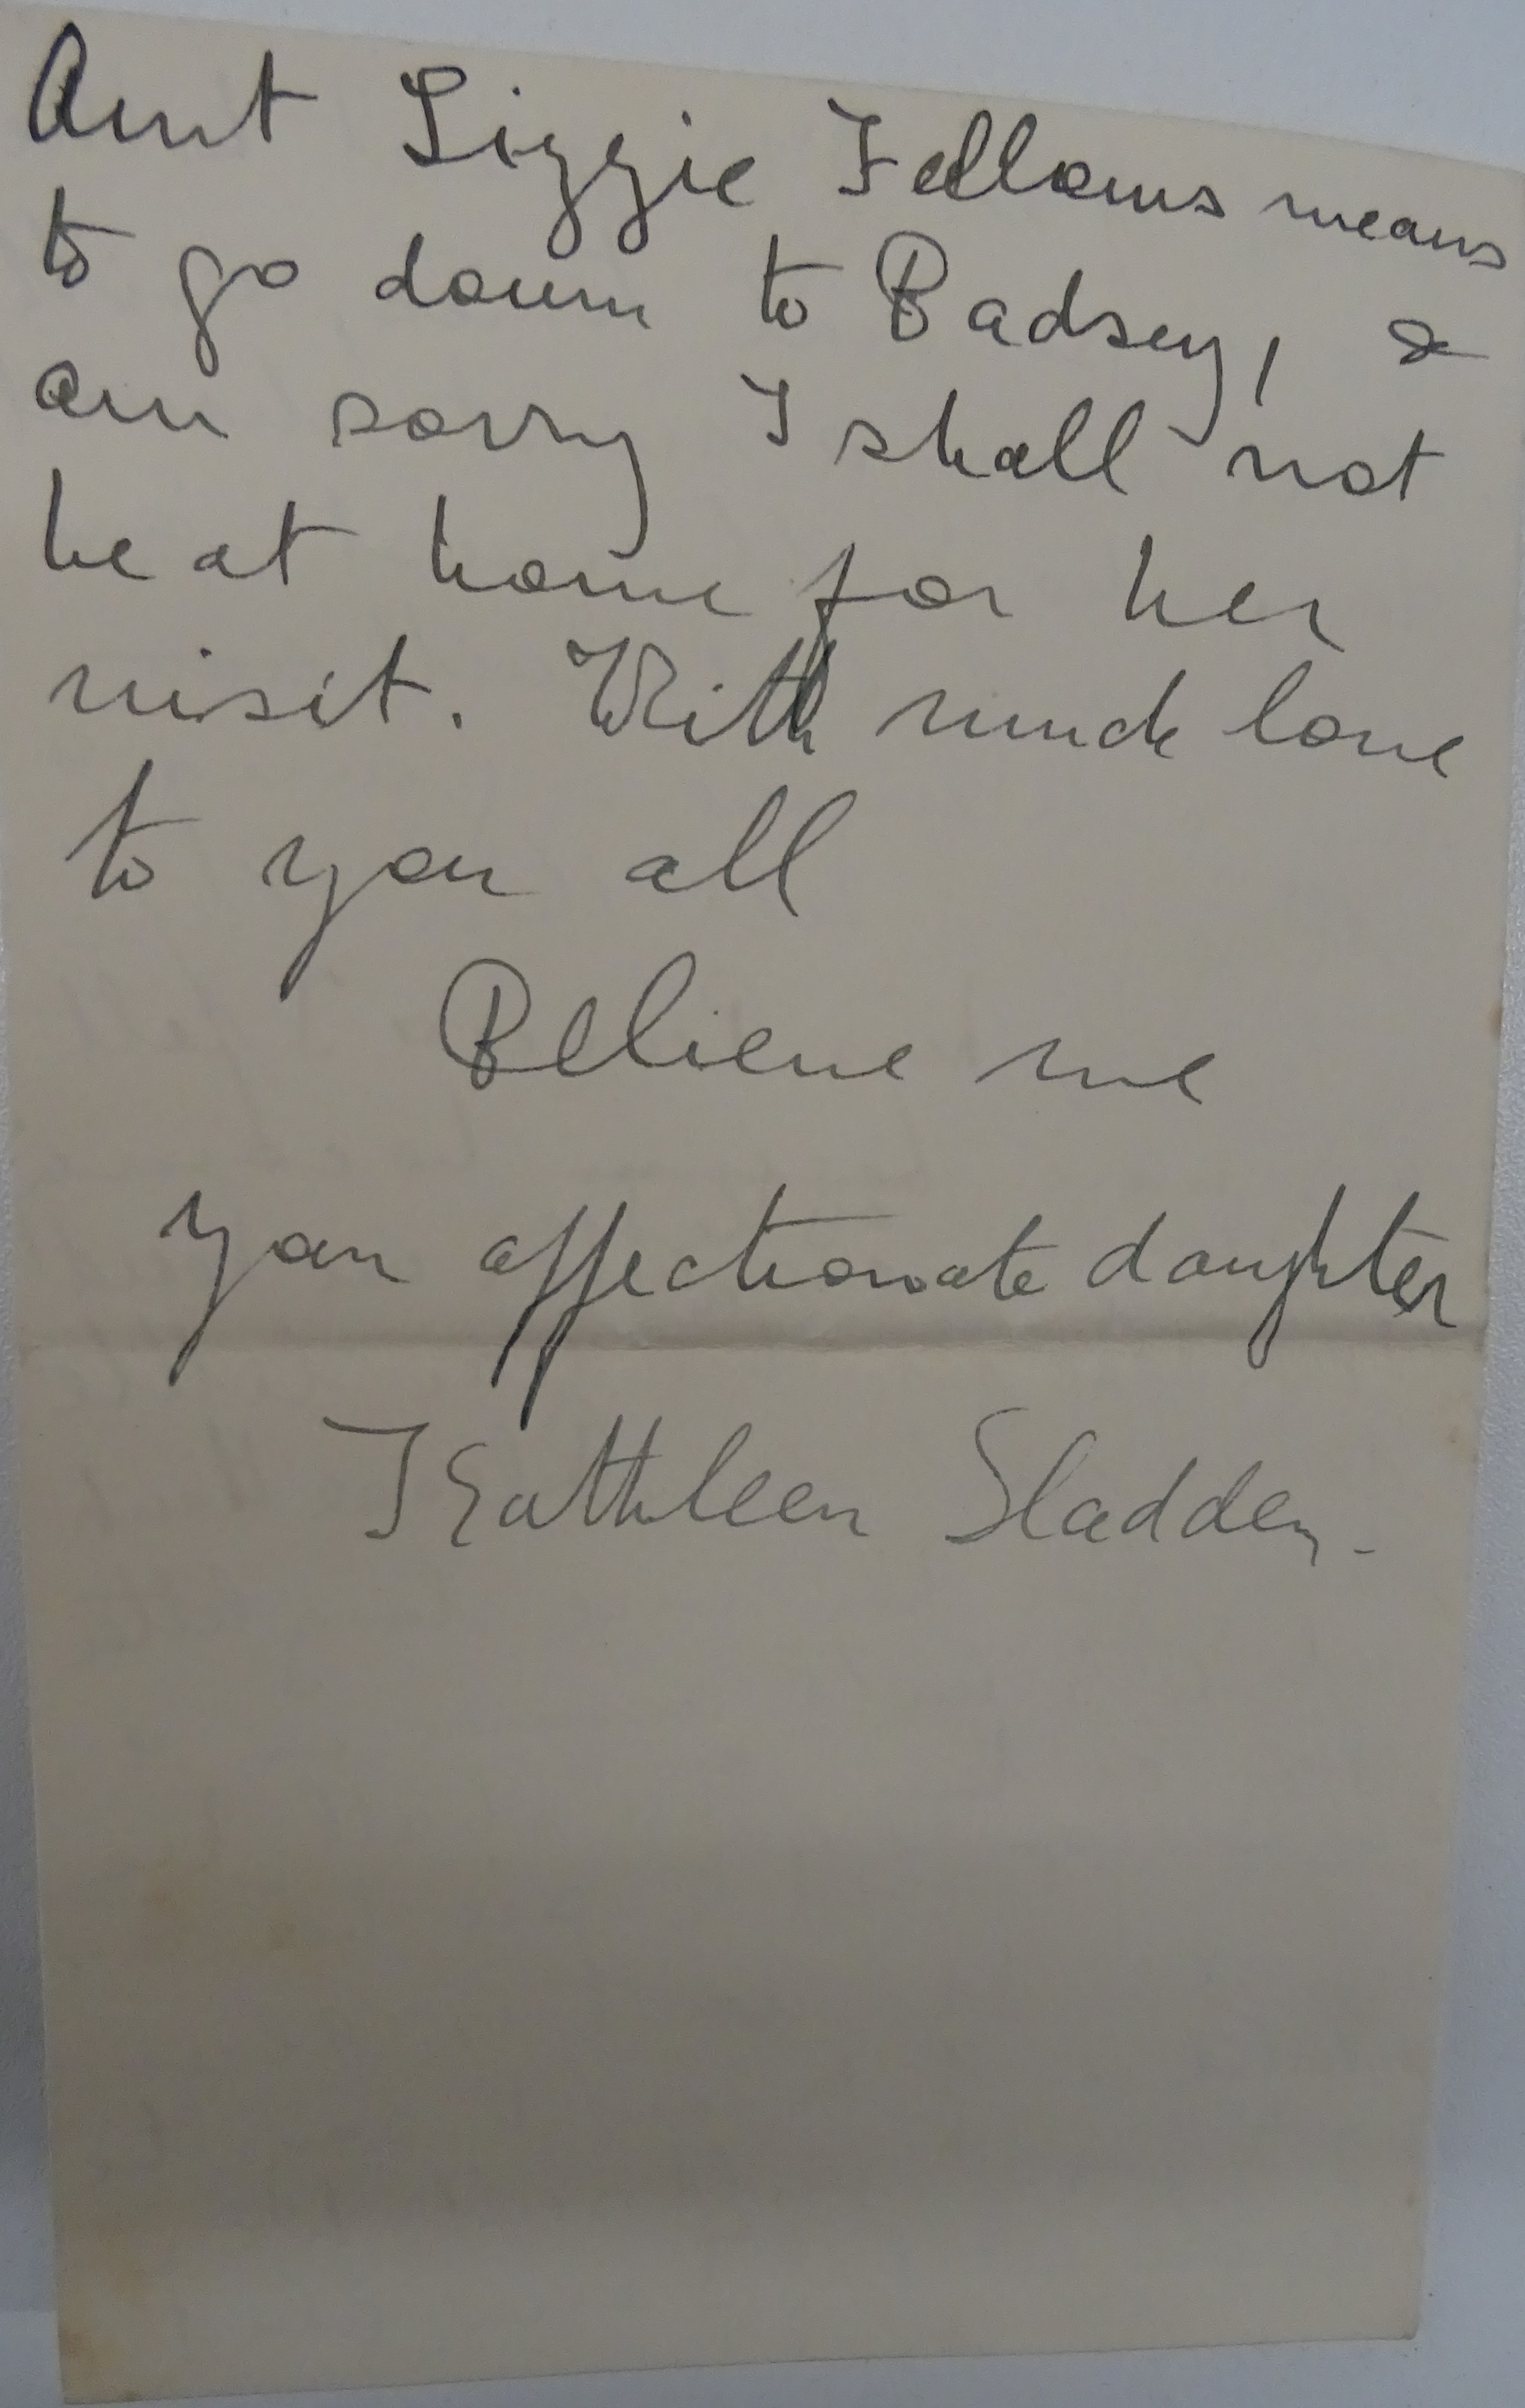 Aunt Lizzie Fellows means
to go down to Badsey, &
am sorry I shall not
be at home for her
visit. With much love
to you all
Believe me
your affectionate daughter
J Kathleen Sladden.